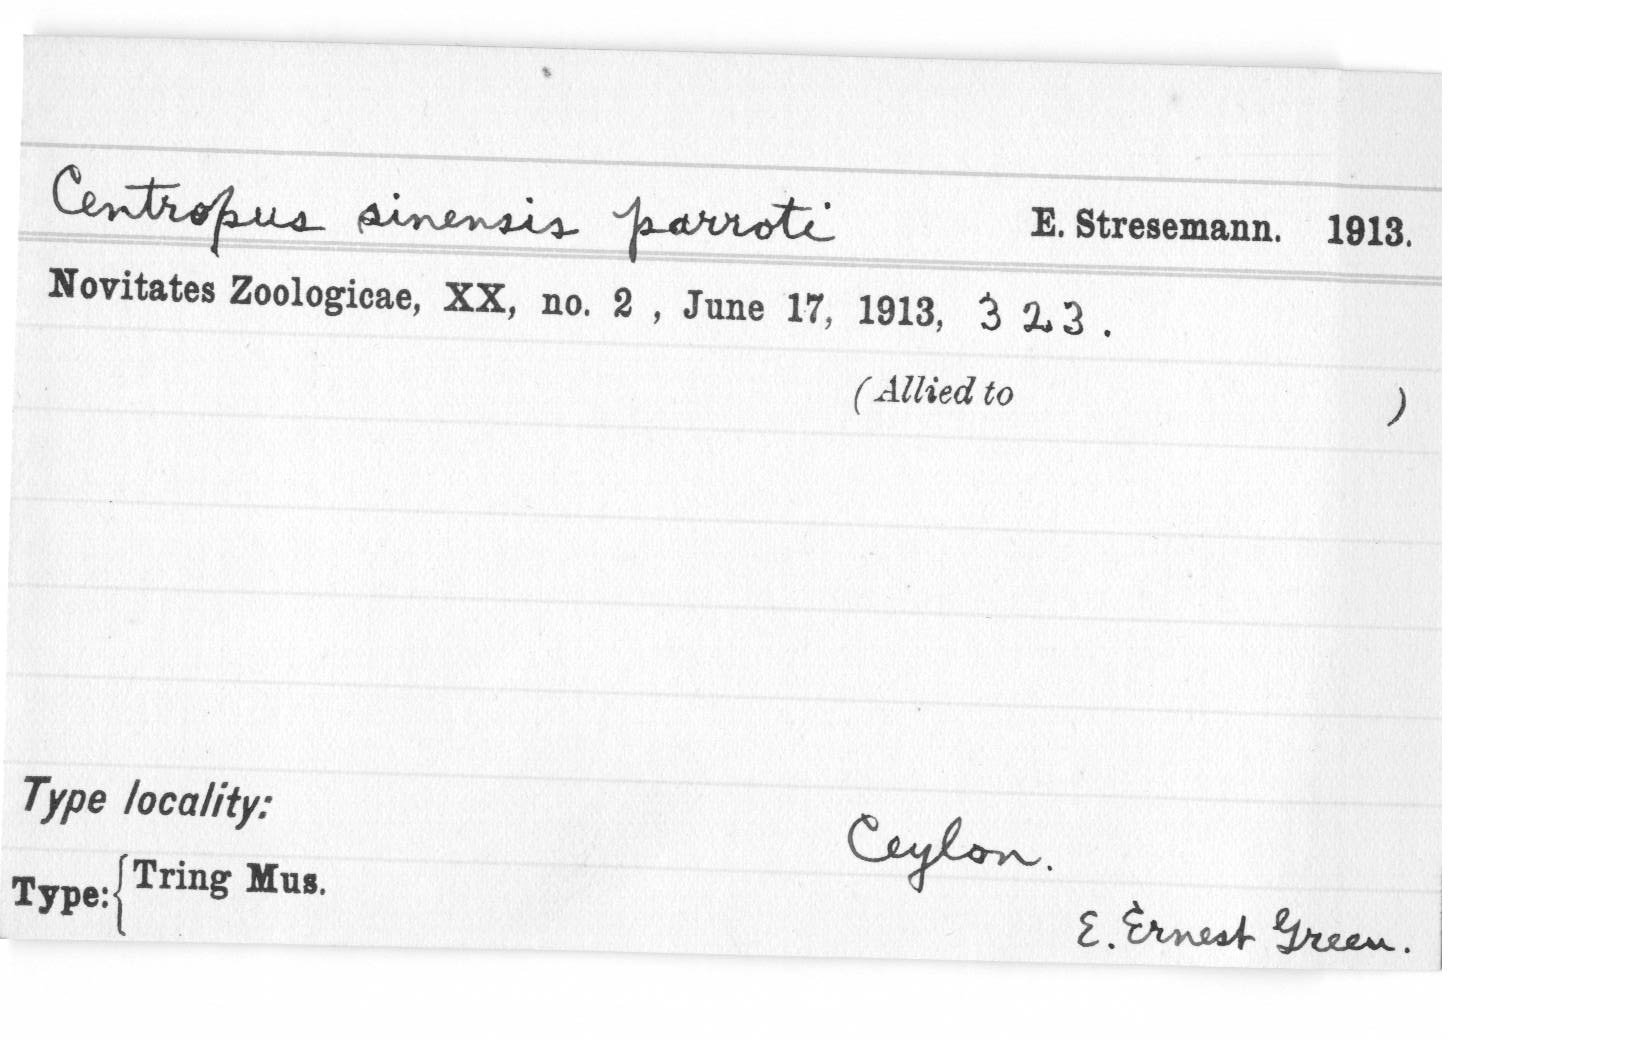 Centropus sinensis parroti E. Stresemann. 1913.
Novitates Zoologicae, XX, no. 2 , June 17, 1913, 323.
(Allied to )
Type locality:
Ceylon.
Type:{Tring Mus.
E. Ernest Green.